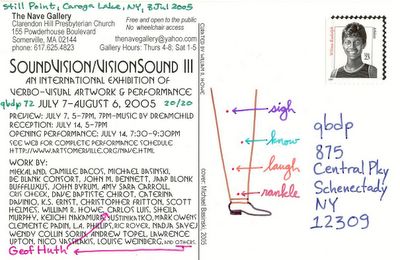 Still Point, Caroga Lake, NY, 3 Jul 2005
The Nave Gallery
Clarendon Hill Presbyterian Church
155 Powderhouse Boulevard
Somerville, MA 02144
phone: 617.625.4823
Free and open to the public
No wheelchair access
thenavegallery@yahoo.com
Gallery Hours: Thurs 4-8; Sat 1-5
SOUNDVISION/VISIONSOUND III
AN INTERNATIONAL EXHIBITION OF
VERBO-VISUAL ARTWORK & PERFORMANCE
qbdp 72 JULY 7-AUGUST 6, 2005 20/20
PREVIEW: JULY 7, 5-7PM, 7PM-MUSIC BY DREAMCHILD
RECEPTION: JULY 14, 5-7PM
OPENING PERFORMANCE: JULY 14, 7:30-9:30PM
SEE WEB FOR COMPLETE PERFORMANCE SCHEDULE
HTTP://WWW.ARTSOMERVILLE.ORG/NAVE.HTML
WORK BY:
MIEKAL AND, CAMILLE BACOS, MICHAEL BASINSKI,
DE BLANK CONSORT, JOHN M. BENNETT, JAAP BLONK
BUFFLUXUS, JOHN BYRUM, AMY SARA CARROLL,
CRIS CHEEK, DAVE BAPTISTE CHIROT, CATERINA
DAVINIO, K.S. ERNST, CHRISTOPHER FRITTON, SCOTT
HELMES, WILLIAM R. HOWE, CARLOS LUIS, SHEILA
MURPHY, KEIICHI NAKAMURA, MARK OWENS
CLEMENTE PADIN, L.A. PHILLIPS, RIC ROYER, NADJA SAYEJ
WENDY COLLIN SORIN, ANDREW TOPEL, LAWRENCE
UPTON, NICO VASSILAKIS, LOUISE WEINBERG, AND OTHERS.
Geof Huth
CURATED BY WILLIAM R. HOWE
cover: Michael Basinski, 2005
sigh
know
laugh
rankle
qbdp
875
Central Pky
Schenectady
NY
12309
Wilma Rudolph
USA
23